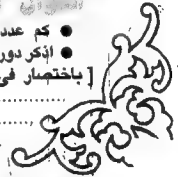 ● كم عدد
● اذكر دور
[ باختصار فى